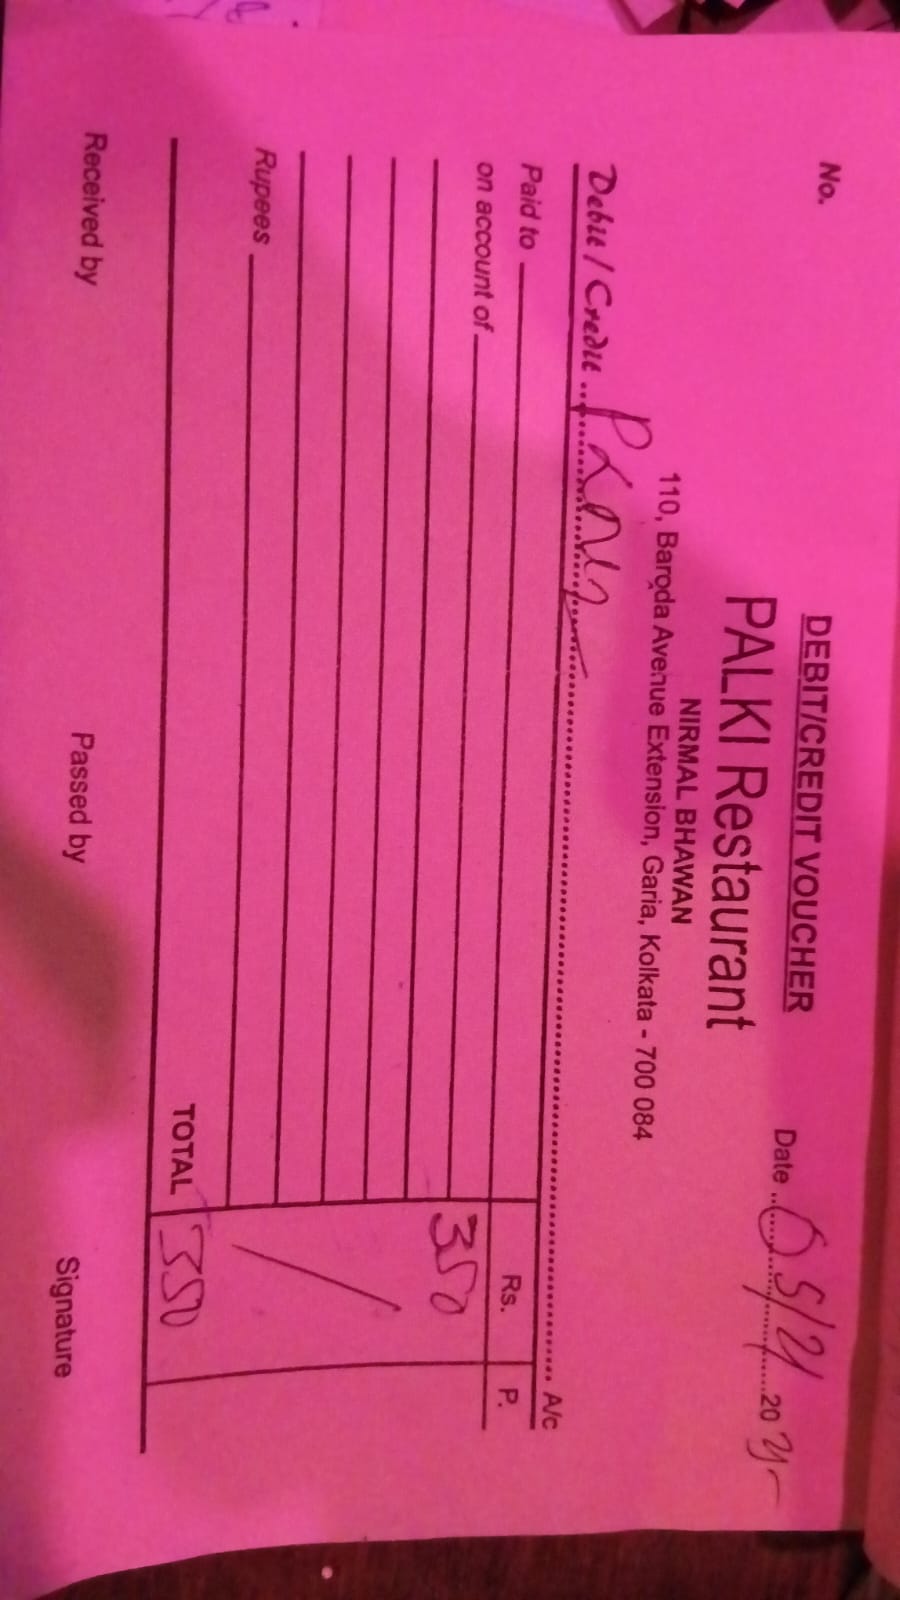 DEBIT/CREDIT VOUCHER
No.
Date
20
PALKI Restaurant
NIRMAL BHAWAN
110, Baroda Avenue Extension, Garia, Kolkata - 700 084
Debit / Credit A/c
Paid to Rs. P.
on account of 350
Rupees
TOTAL 350
Received by Passed by Signature